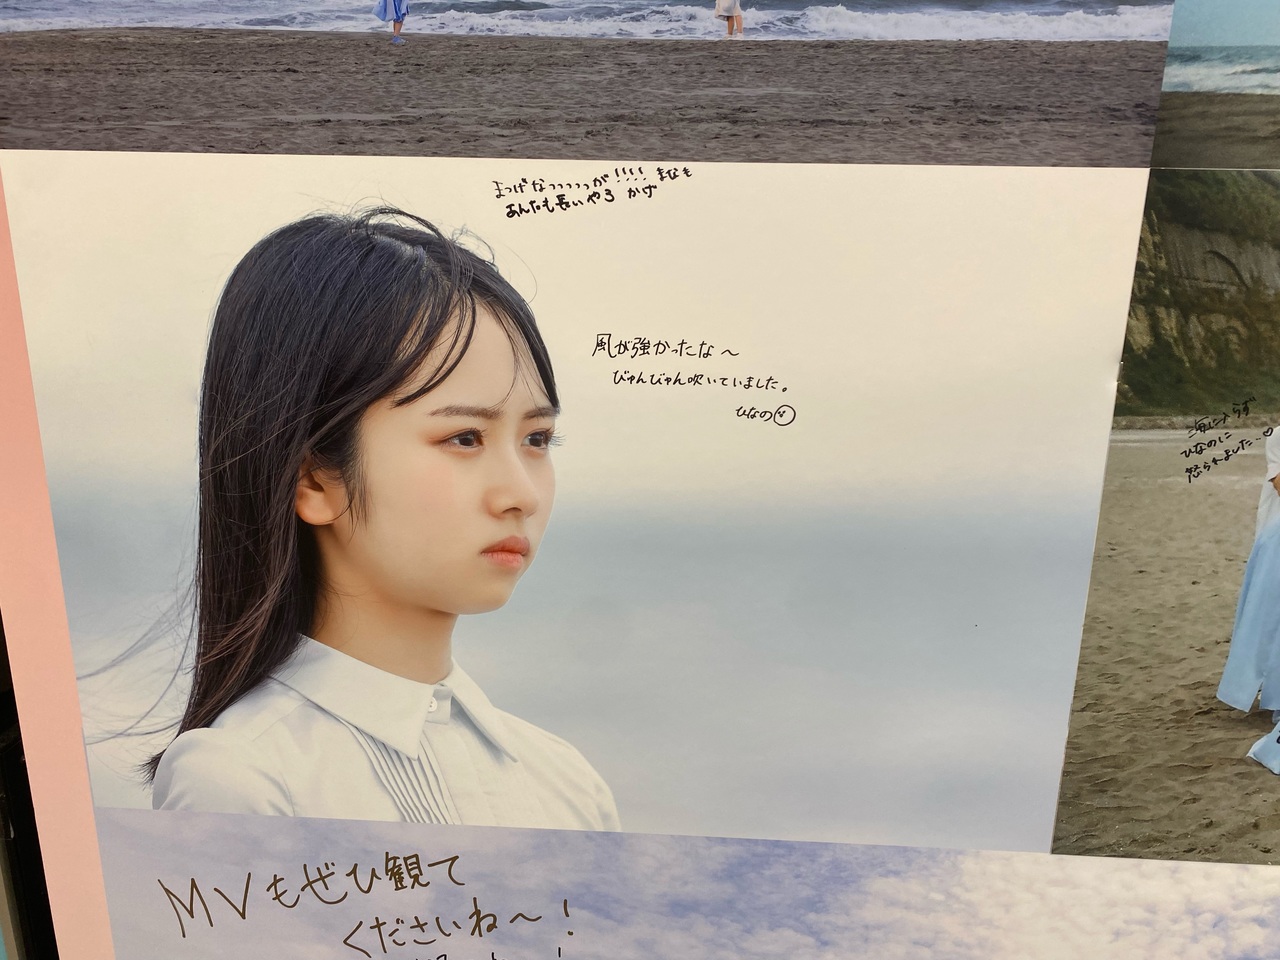 まつげなっっっっっが!!!! まなも
あんたも長いやろ かげ
風が強かったな〜
びゅんびゅん吹いていました。
ひなの
海に入らず
ひなのに
怒られました…♡
MVもぜひ観て
くださいね〜!